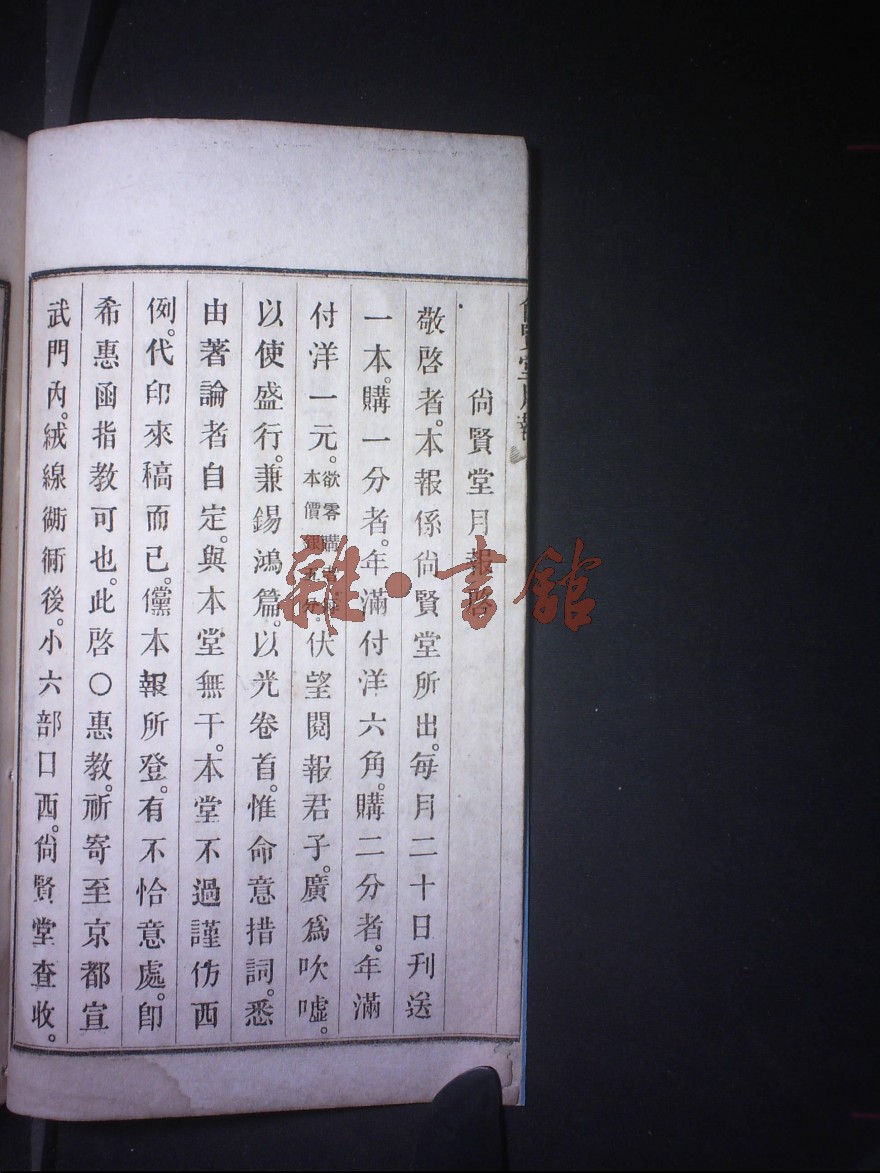 尙賢堂月報啓
敬啓者。本報係尙賢堂所出。每月二十日刊送
一本。購一分者。年滿付洋六角。購二分者。年滿
付洋一元。欲零購者每本價洋五分。伏望閱報君子。廣爲吹噓。
以使盛行。兼錫鴻篇。以光卷首。惟命意措詞。悉
由著論者自定。與本堂無干。本堂不過謹仿西
例。代印來稿而已。儻本報所登。有不恰意處。卽
希惠函指教可也。此啓○惠教。祈寄至京都宣
武門內。絨線衚衕後。小六部口西。尙賢堂查收。
雜·書館